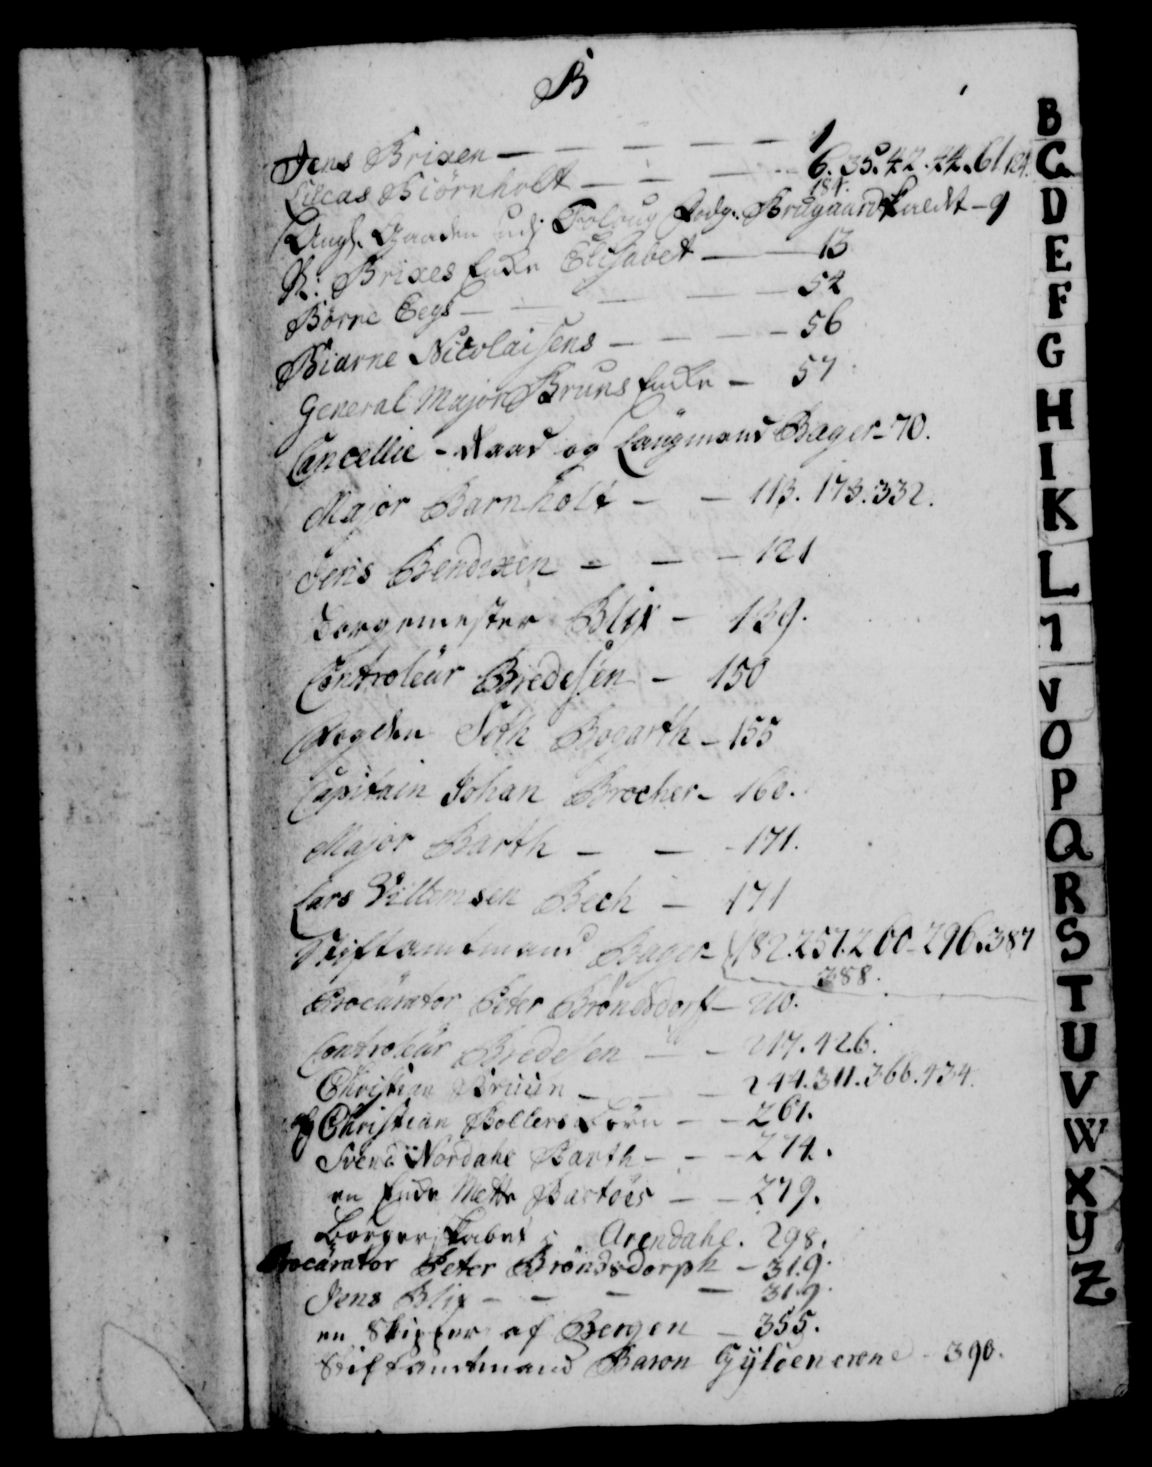 B
Jens Brixen — — — — 1
Lucas Biörnholt — — — 6. 35. 42. 44. 61. 124.
184.
Gaarden udj Brugaard kaldt — 9
Brixes Enke Elisabet — — 13
Børne Eegs — — — — 54
Biarne Nicolaisens — — — 56
General Major Bruns Enke — 57
Cancellie-Raad og Laugmand Bager — 70.
Major Barnholt — — 113. 173. 332.
Jens Bendixen — — — 121
Borgemester Blix — 139.
Controleur Bredesen — 150
Fogden Seth Bogarth — 155
Capitain Johan Brocher — 160.
Major Barth — — 171.
Lars Villemsen Bech — 171
Stiftamtmand Bager — 182. 257. 260. 296. 387
388.
Procurator Peter Bröndsdorff — 210.
Controleur Bredesen — — 217. 426.
Christian Bruun — — — 244. 311. 366. 434.
Christian Bollers Börn — — 261.
Svend Nordahl Barth — — — 274.
en Enke Mette Bartoes — — 279.
Borgerskabet i Arendahl. 298.
Procurator Peter Bröndsdorph — 319.
Jens Blix — — — — 319.
en Skipper af Bergen — 355.
Stiftamtmand Baron Gyldencrone — 390.
B
C
D
E
F
G
H
I
K
L
O
P
Q
R
S
T
U
V
W
X
Y
Z